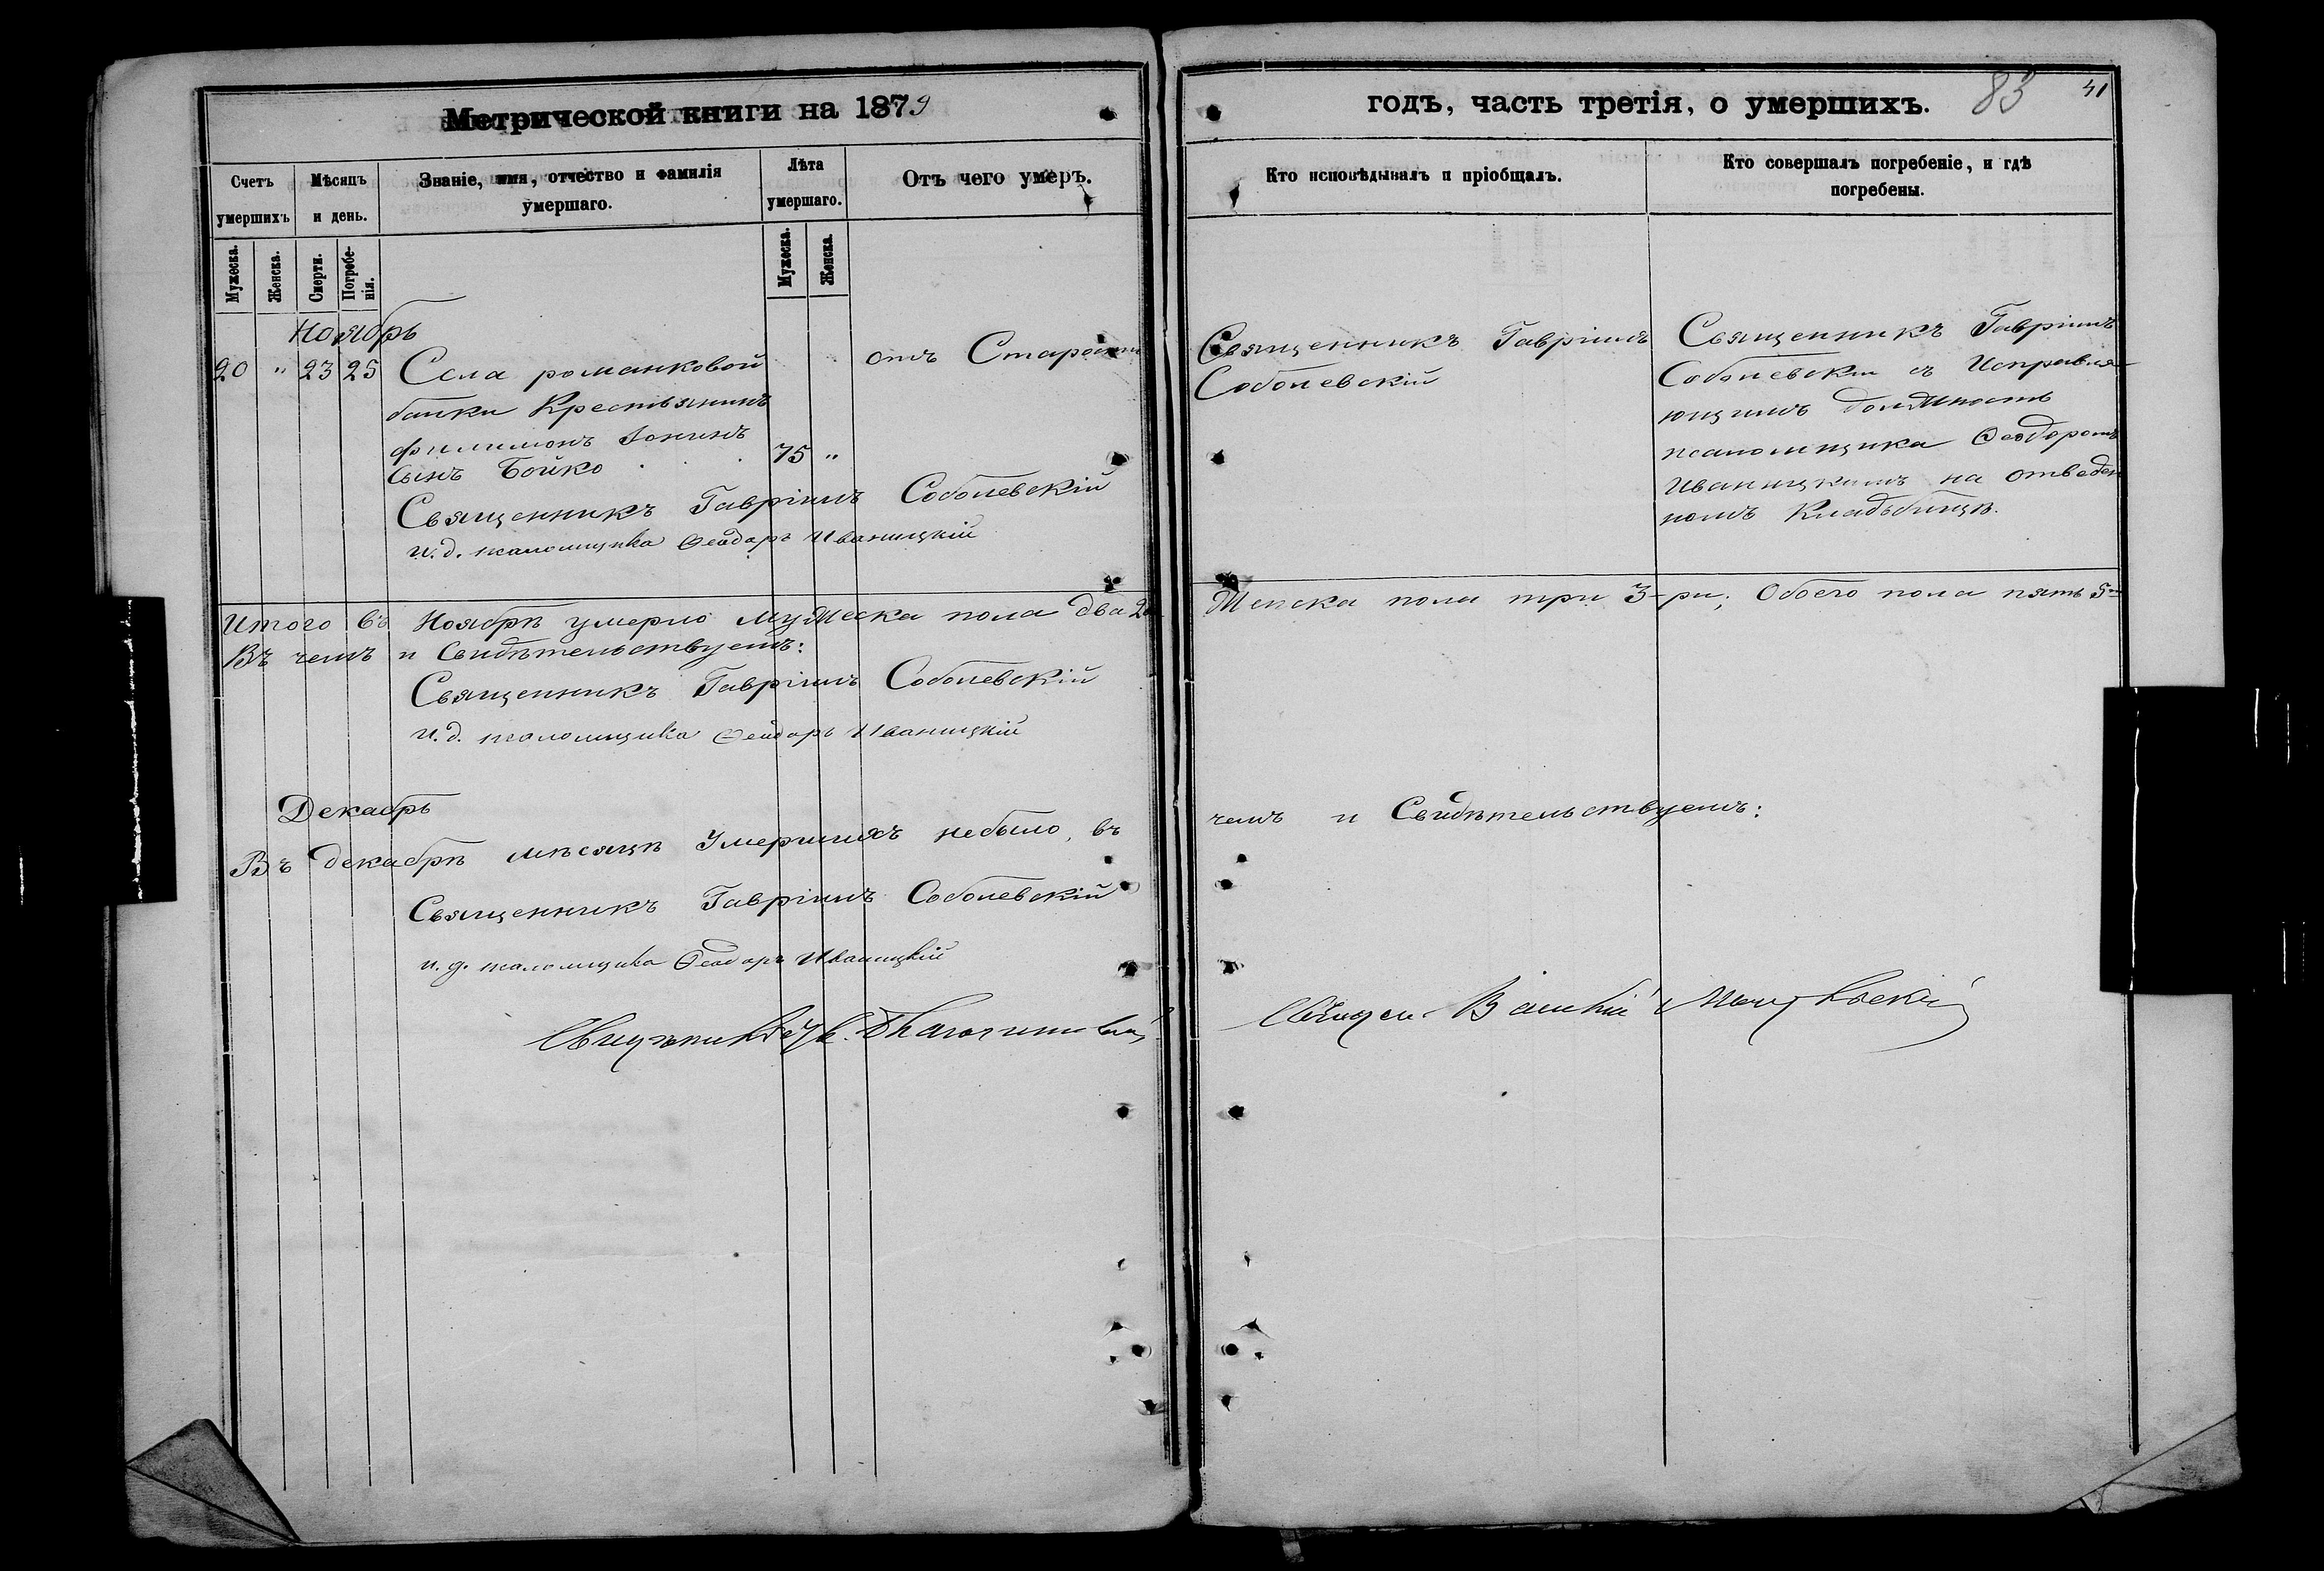 Метрической книги на 1879
Счетъ умершихъ
Мѣсяцъ и день.
Званіе, имя, отчество и фамилія умершаго.
Лѣта умершаго.
Отъ чего умеръ.
Мужеска.
Женска.
Смерти.
Погребенія.
Мужеска.
Женска.
Ноябрь
20 " 23 25 Села романковой
балки Крестьянинъ
Филимонъ Іонинъ
сынъ Бойко 75 "
отъ Старости
Священникъ Гавріилъ Соболевскій
и. д. псаломщика Ѳеодоръ Иваницкій
Итого въ Ноябрѣ умерло мужеска пола два 2
Въ чемъ и Свидѣтельствуемъ:
Священникъ Гавріилъ Соболевскій
и. д. псаломщика Ѳеодоръ Иваницкій
Декабрь
Въ декабрѣ мѣсяцѣ Умершихъ небыло, въ
Священникъ Гавріилъ Соболевскій
и. д. псаломщика Ѳеодоръ Иваницкій
годъ, часть третія, о умершихъ.
83
41
Кто исповѣдывалъ и пріобщалъ.
Кто совершалъ погребеніе, и гдѣ погребены.
Священникъ Гавріилъ
Соболевскій
Священникъ Гавріилъ
Соболевскій съ Исправля-
ющимъ должность
псаломщика Ѳеодоромъ
Иваницкимъ на отведен
номъ Кладбищѣ.
Женска пола три 3-ри; Обоего пола пять 5
чемъ и Свидѣтельствуемъ: